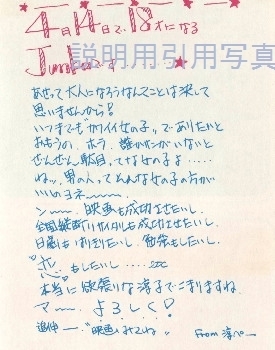 4月14日で、18才になる
Junkoです
説明用引用写真
あせって大人になろうなんてことは決して
思いませんから!
いつまでも"カワイイ女の子"でありたいと
おもうの。ホラ、誰かがついがいないと
ぜんぜん駄目ってな女の子よ・・・・・
ねッ。男の人ってそんな女の子の方が
いいのヨネ〜〜。
ン〜〜。映画も成功させたいし、
全国縦断リサイタルも成功させたいし、
日劇もやりたいし、勉強もしたいし、
"恋"もしたいし....etc
本当に欲張りな淳子でこまりますね。
マ〜、よろしく!
追伸ー"映画もみてね"
From 淳ぺー